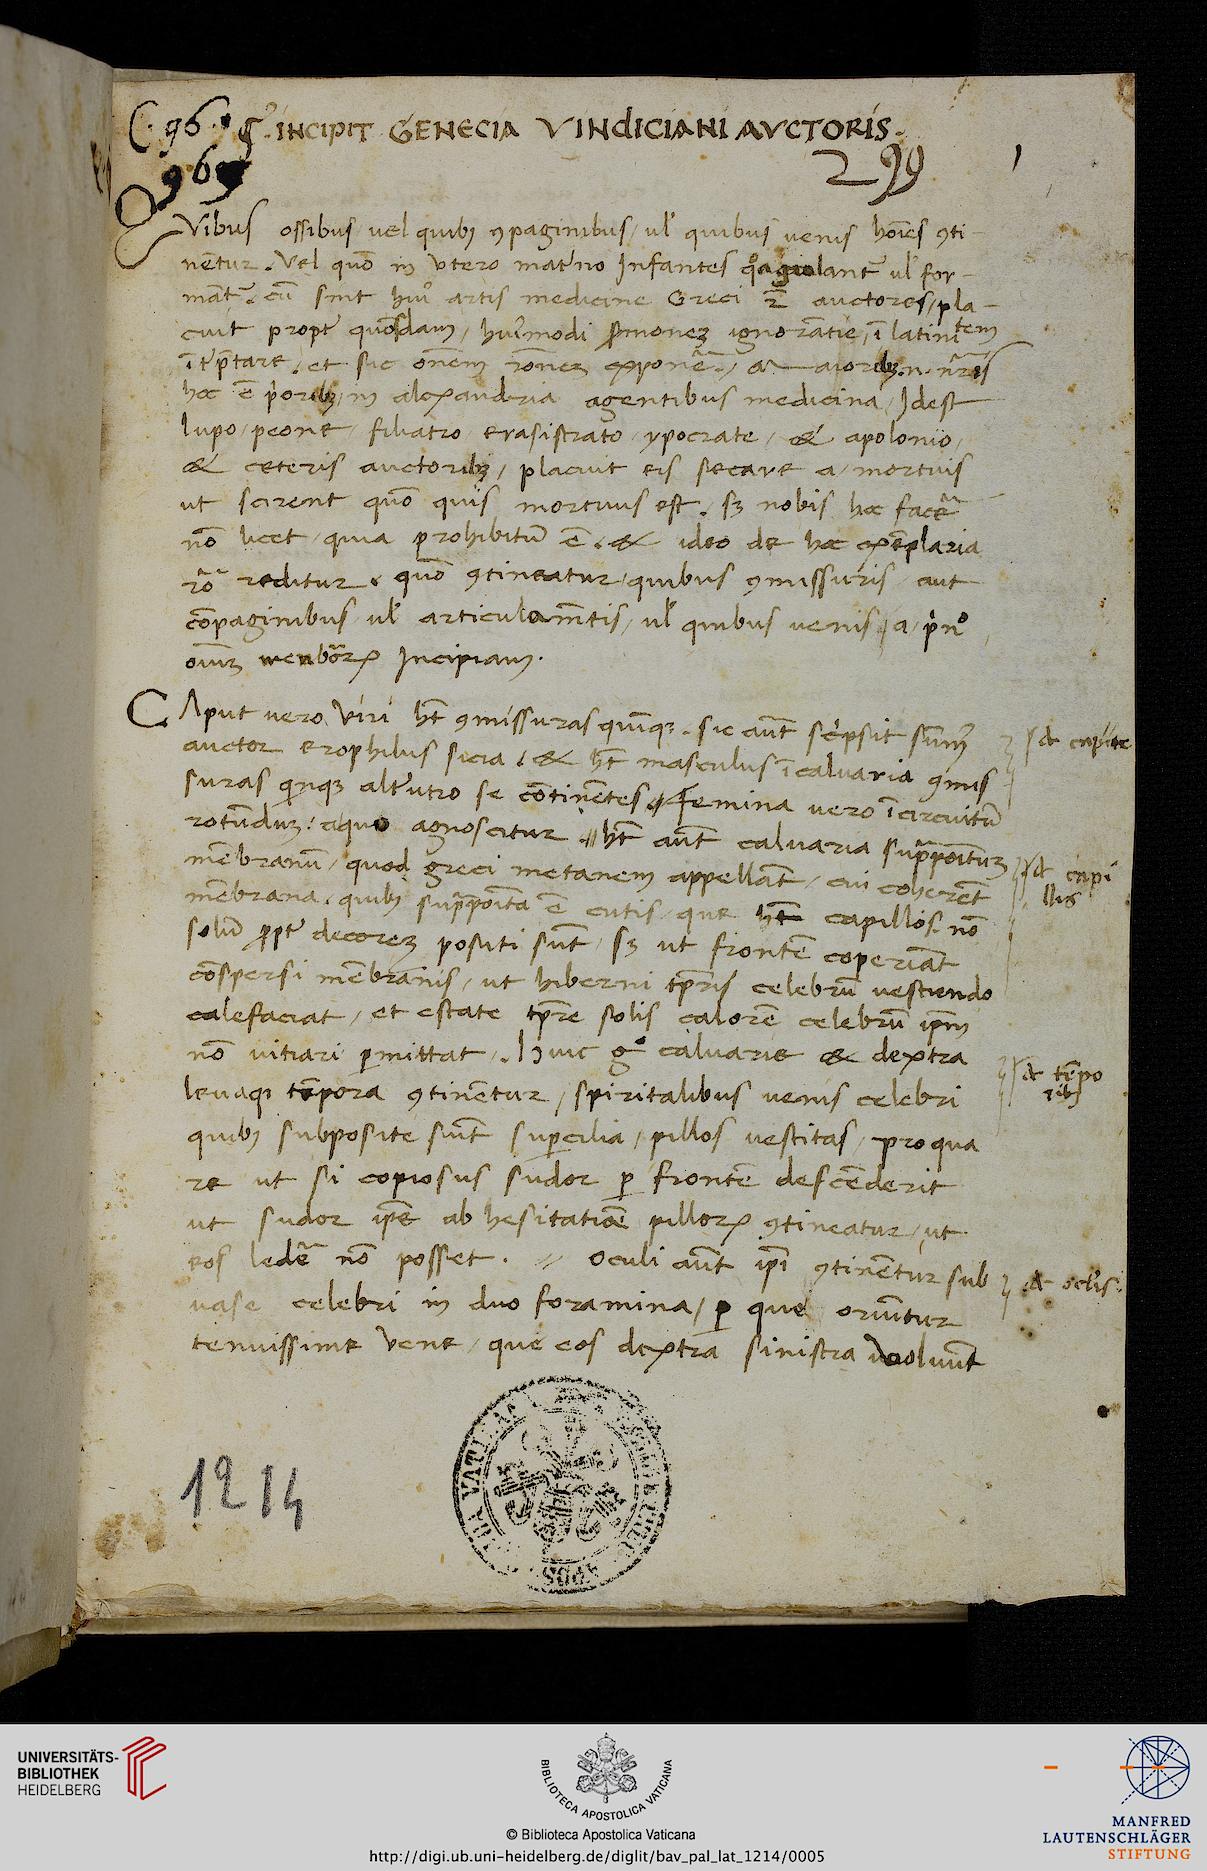 C. 96.
INCIPIT GENECIA VINDICIANI AVCTORIS.
969
299
1
QVibus ossibus / uel quibꝫ ꝯpaginibus / ul' quibus uenis hoīes ꝯti-
nētur. Vel quō in vtero mat'no Infantes lant' ul' for-
mant'. cū sint hui' artis medicine Greci auctores / pla-
cuit propt' quosdam / hui'modi s'moneꝫ ignorātie / ī latinitem
īt'p̄tare. et sic omem roneꝫ exponē.
hoc ē p'oribꝫ / in alexandria agentibus medicina / Idest
lupo / peone / filiatro / erasistrato / ypocrate / & apolonio /
& ceteris auctoribꝫ / placuit eis secare a / mortuis
ut scirent quō quis mortuus est. sꝫ nobis hoc facē
nō licet / quia prohibitū ē. & ideo de hoc exēplaria
rō reditur. quō ꝯtineatur / quibus ꝯmissuris / aut
cōpaginibus / ul' articulamtis / ul' quibus uenis / a / p'nº
oīuꝫ menbroꝝ Incipiam.
CAput uero Viri ht ꝯmissuras quīqꝫ. sic aūt sc'psit sūm'
auctor erophilus sicia. & ht masculus ī caluaria ꝯmis
suras qinqꝫ alt'utro se cōtinētes // femina uero ī circuitū
rotūduꝫ: aquo agnoscitur // ht aūt caluaria sup̄poituꝫ
mēbranū / quod greci metanem appellāt / cui coherēt
mēbrana. quibꝫ sup̄poita ē cutis / que ht capillos. nō
solū propt' decoreꝫ positi sūt / sꝫ ut frontē coperiāt
cōspersi mēbranis / ut hiberni tp̄ris celebrū vestiendo
calefaciat / et estate tp̄re solis calorē celebrū ip̄m
nō uitiari pmittat. Huic gº caluarie & dextra
leuaqꝫ tēpora ꝯtinētur / spiritalibus uenis celebri
quibꝫ subposite sūt supcilia / pillos uestitas / pro qua
re ut si copiosus sudor p frontē descēderit
ut sudor ip̄e ab hesitatiōe pilloꝝ ꝯtineatur / ut
eos ledē nō posset. // Oculi aūt ip̄i ꝯtinētur sub
uase celebri in duo foramina / p que oriūtur
tenuissime vene / que eos dextra sinistra uoluūt
de capite
de capi
llis
de tēpo
ribꝫ
de oclis
1214
UNIVERSITÄTS-
BIBLIOTHEK
HEIDELBERG
BIBLIOTECA APOSTOLICA VATICANA
© Biblioteca Apostolica Vaticana
http://digi.ub.uni-heidelberg.de/diglit/bav_pal_lat_1214/0005
MANFRED
LAUTENSCHLÄGER
STIFTUNG